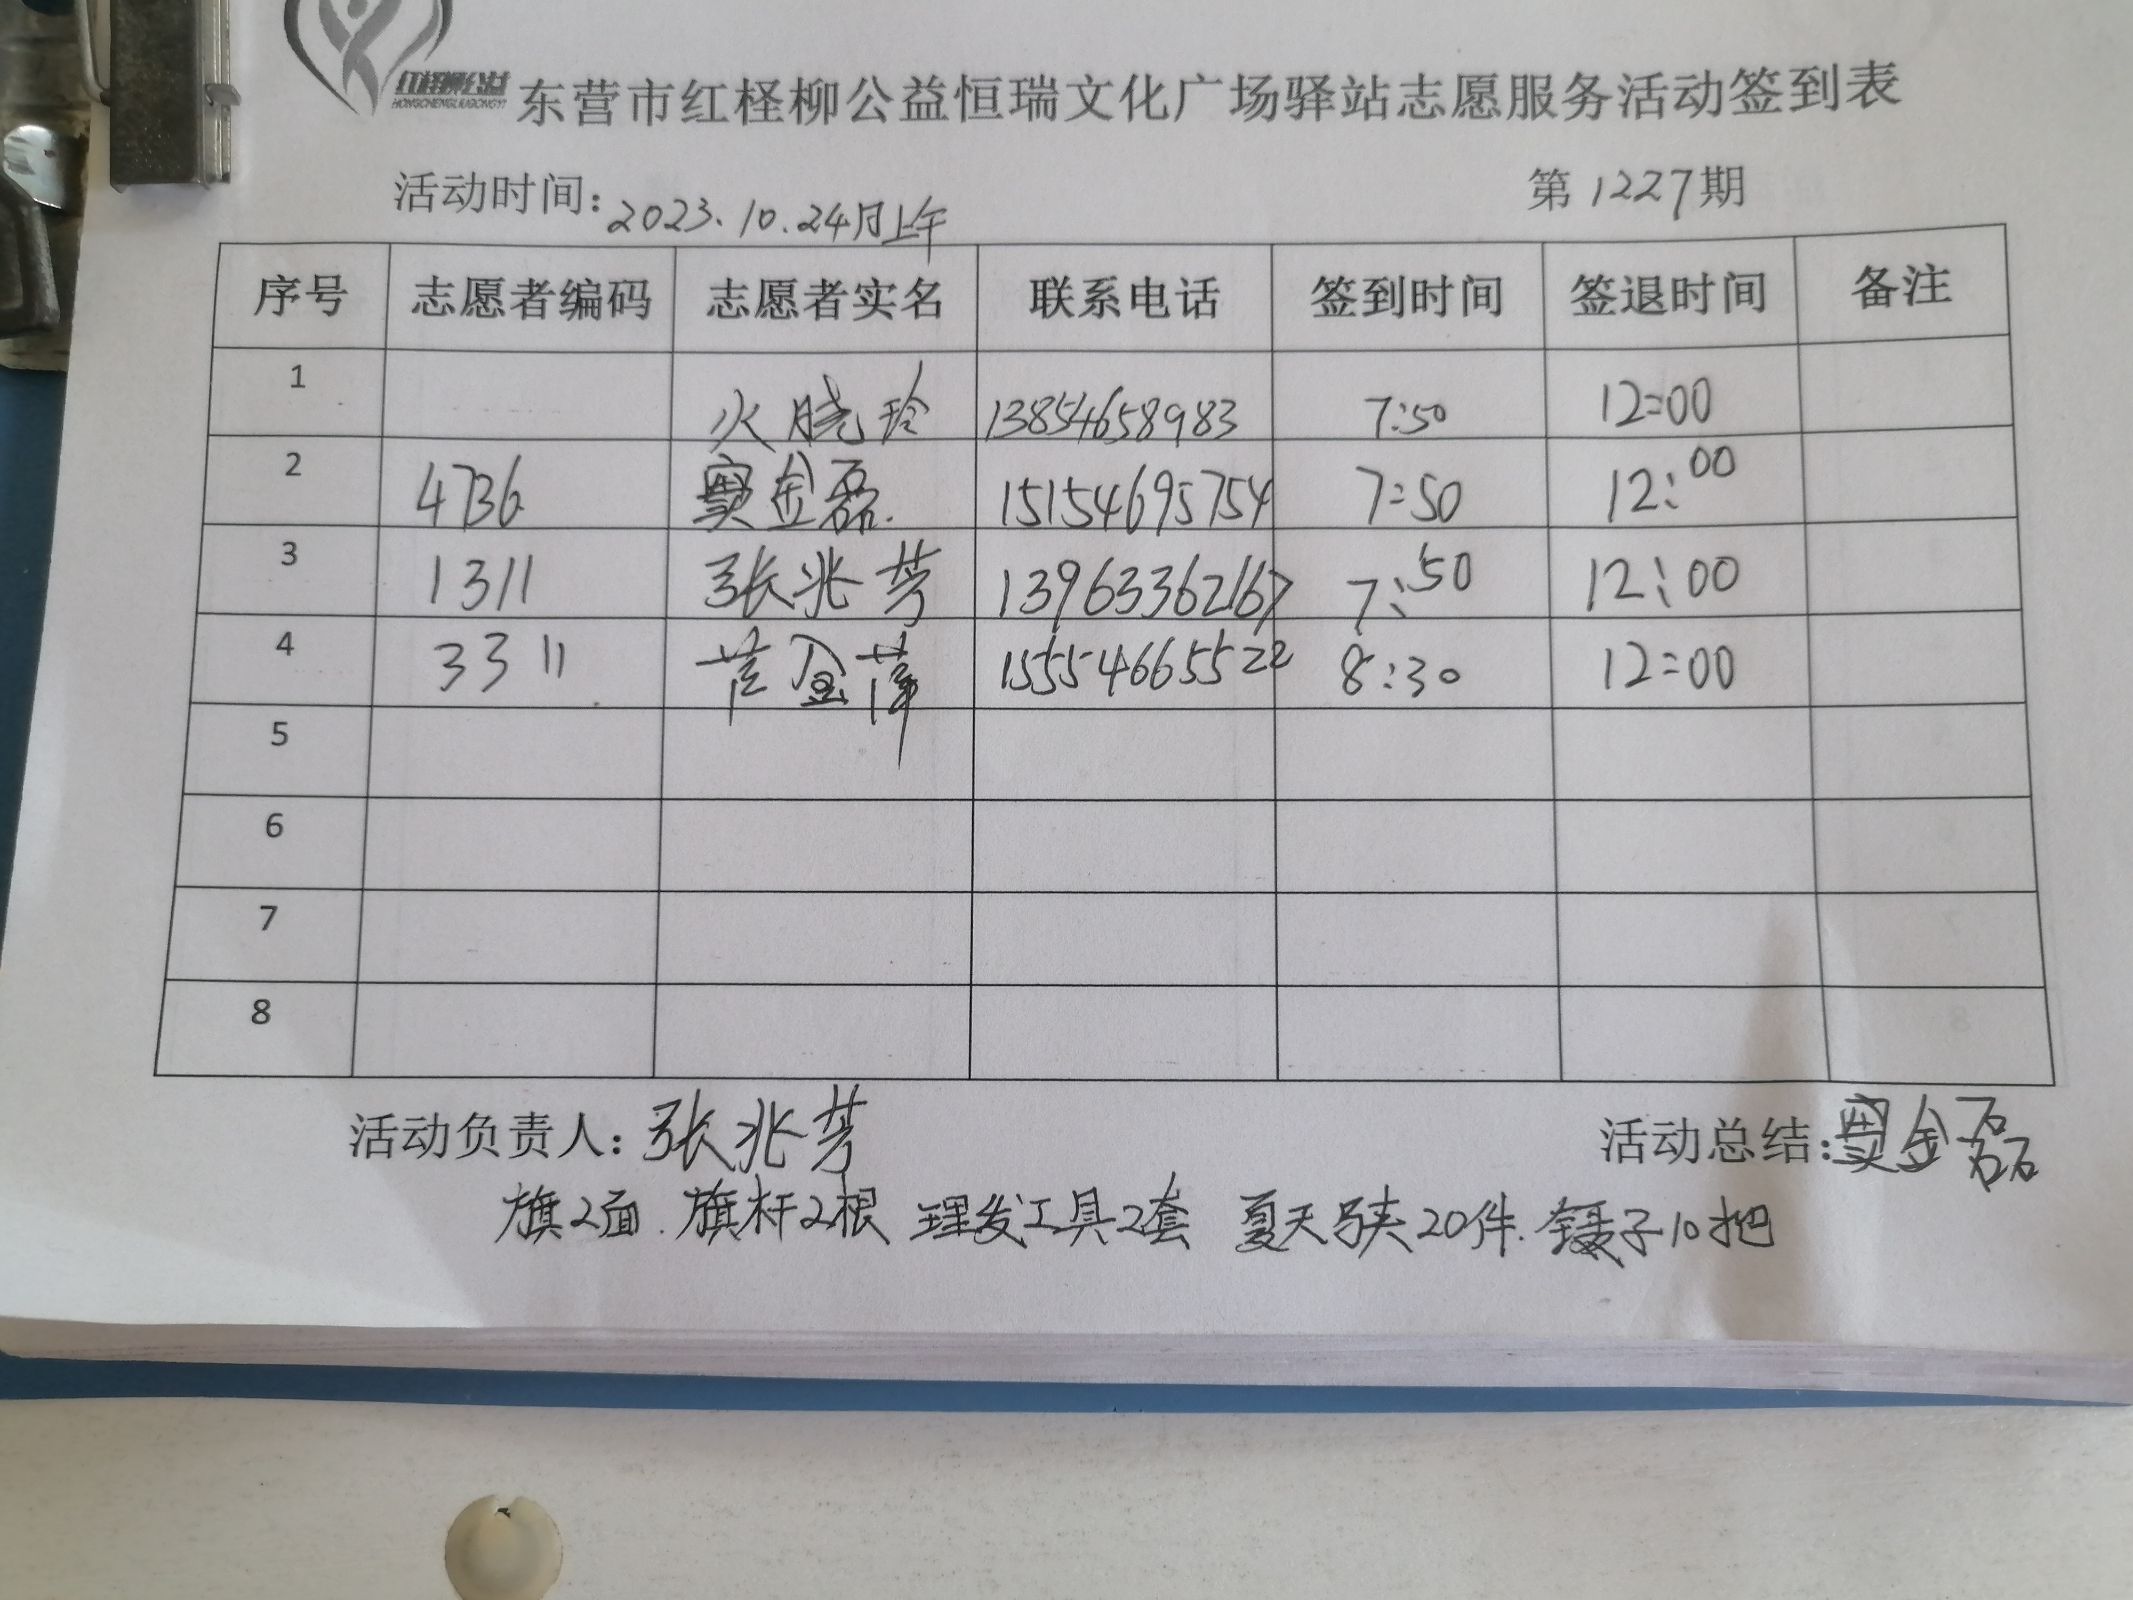 红柽柳公益
HONGCHENGLIUGONGYI
东营市红柽柳公益恒瑞文化广场驿站志愿服务活动签到表
活动时间：2023.10.24日上午 第1227期
序号 志愿者编码 志愿者实名 联系电话 签到时间 签退时间 备注
1 火晓玲 13854658983 7:50 12:00
2 4736 窦金磊 15154695754 7:50 12:00
3 1311 张兆芳 13963362167 7:50 12:00
4 3311 金萍 15554665522 8:30 12:00
5
6
7
8
活动负责人：张兆芳 活动总结：窦金磊
旗2面.旗杆2根 理发工具2套 夏天马夹20件.镊子10把